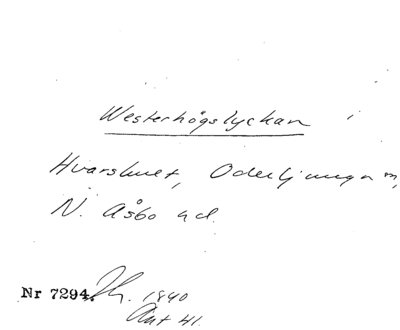 Westerhögslyckan i
Hvarshult, Oderljunga sn,
N. Åsbo hd.
Nr 7294. 1840
Akt 41.